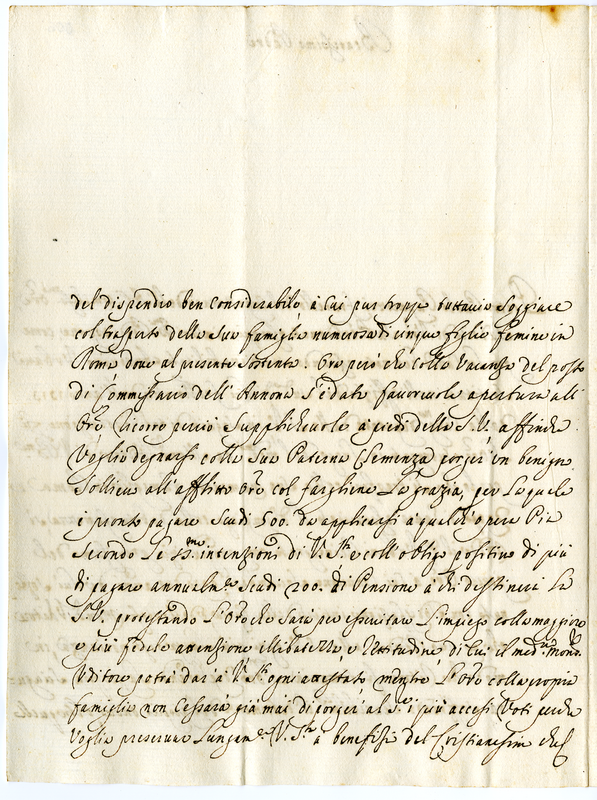 del dispendio ben considerabile, à cui pur troppo tuttavia soggiace
col trasporto della sua famiglia numerosa di cinque figlie femine in
Roma dove al presente sostenta. Ora però che colla Vacanza del posto
di Commissario dell'Annona s'è data favorevole apertura all'
Ore ricorre perciò supplichevole à piedi della S.V. affinche
Voglia degnarsi colla sua Paterna Clemenza porger un benigno
sollievo all'afflitto Ore col fargliene la grazia, per la quale
è pronto pagare scudi 500. da applicarsi à qualch'opera Pia
secondo le SS.me intenzioni di V. Stà e coll'obligo positivo di più
di pagare annualm.te scudi 200. di Pensione à chi destinerà la
S.V. protestando l'Ore che sarà per essercitare l'impiego colla maggiore
e più fedele attenzione illibatezza, e attitudine di cui il med.mo Mons.
Uditore potrà dar à V. Stà ogni attestato mentre l'Ore colla propria
famiglia non cessarà già mai di porger al Sig.e i più accesi Voti perche
Voglia preservar lungam.te V. Stà à beneficio del Cristianesimo che